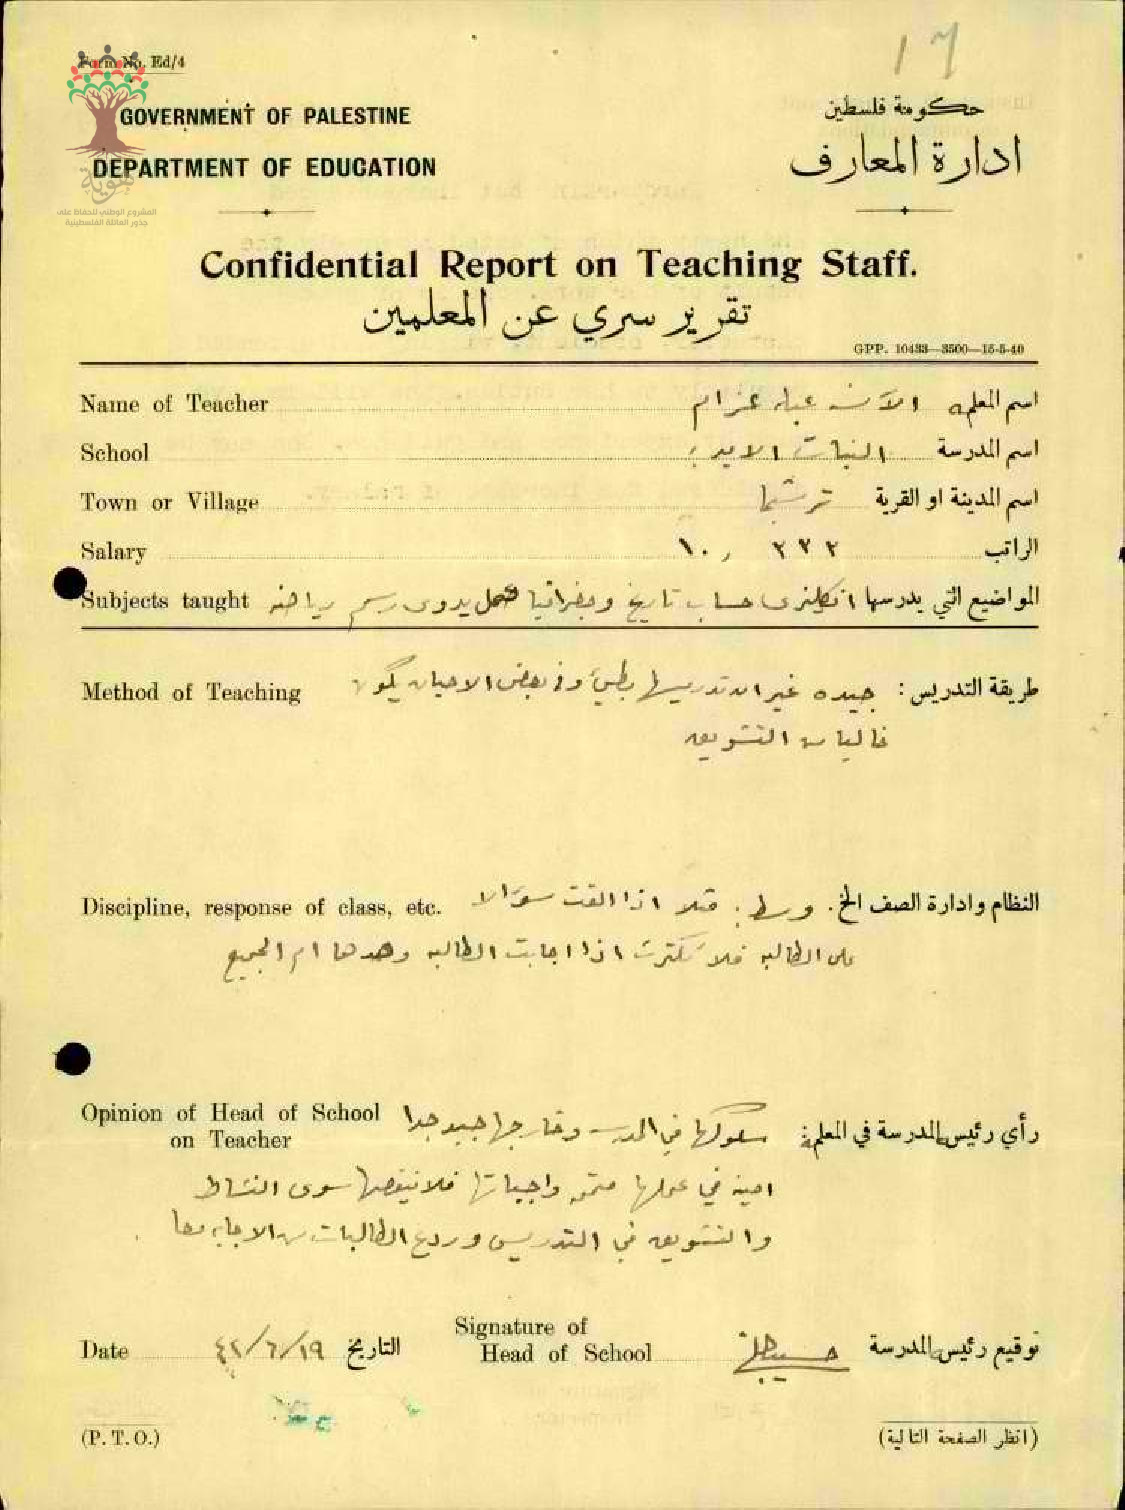 17
Form No. Ed/4
GOVERNMENT OF PALESTINE
حكومة فلسطين
DEPARTMENT OF EDUCATION
ادارة المعارف
هوية
المشروع الوطني للحفاظ على
جذور العائلة الفلسطينية
Confidential Report on Teaching Staff.
تقرير سري عن المعلمين
GPP. 10433—3500—15-5-40
Name of Teacher الآنسه عبله عزام اسم المعلمه
School البنات الاميرية اسم المدرسة
Town or Village ترشيحا اسم المدينة او القرية
Salary ١٠,٣٣٣ الراتب
Subjects taught المواضيع التي يدرسها انكليزي حساب تاريخ وجغرافيا عمل يدوي رسم رياضه
Method of Teaching طريقة التدريس: جيده غير ان تدريسها بطيئ وفي بعض الاحيان يكون
خاليا من التشويق
Discipline, response of class, etc. النظام وادارة الصف الخ. وسط: فمثلا اذا القت سؤالا
على الطالبه فلا تكترث اذا اجابت الطالبه وحدها ام الجميع
Opinion of Head of School رأي رئيسة المدرسة في المعلمة: سلوكها في المدرسه وخارجها جيد جدا
on Teacher
امينه في عملها متممه واجباتها فلا ينقصها سوى النشاط
والتشويق في التدريس وردع الطالبات من الاجابه معا
Signature of
Date ٤٢/٦/١٩ التاريخ Head of School توقيع رئيسة المدرسة
(P. T. O.) (انظر الصفحة التالية)